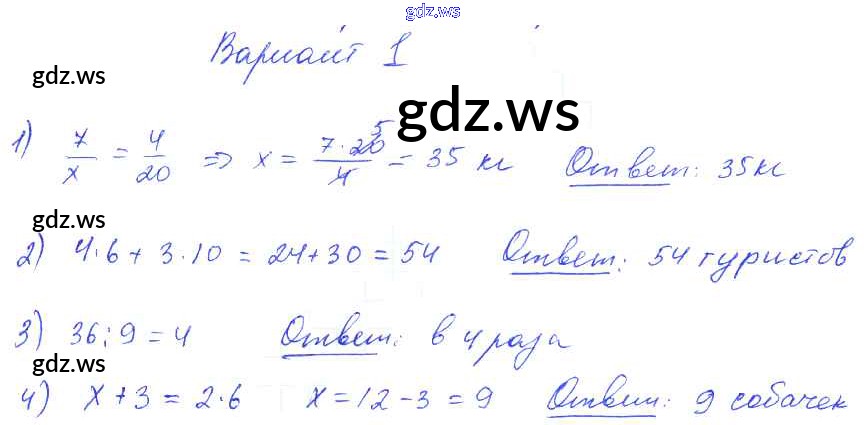 gdz.ws
Вариант 1
gdz.ws
gdz.ws
1) 7/x = 4/20 => x = 7·20/4 5 = 35 кг Ответ: 35 кг
gdz.ws
2) 4·6 + 3·10 = 24+30 = 54 Ответ: 54 туристов
3) 36:9 = 4 Ответ: в 4 раза
gdz.ws
4) x + 3 = 2·6 x = 12 - 3 = 9 Ответ: 9 собачек